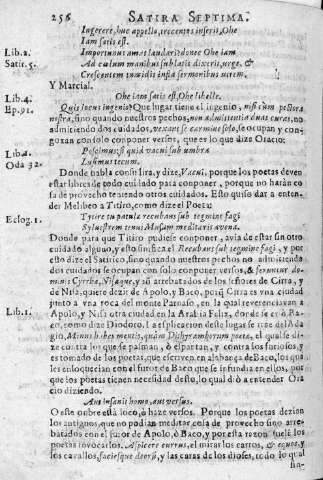 256 SATIRA SEPTIMA.
Ingerere, huc appello, trecentos inseris, Ohe
Iam satis est.
Lib. 2. Importunus amat laudari? donec Ohe iam
Satir. 5. Ad cælum manibus sublatis dixerit, urge, &
Crescentem tumidis infla sermonibus utrem.
Y Marcial.
Lib. 4. Ohe iam satis est, Ohe libelle.
Ep. 91. Quis locus ingenio? Que lugar tiene el ingenio, nisi cum pectora
nostra, sino quando nuestros pechos, non admittentia duas curas, no
admitiendo dos cuidados, vexant se carmine solo, se ocupan y con-
gojan con solo conponer versos, que es lo que dize Oracio:
Lib. 1. Poscimus, si quid vacui sub umbra
Oda 32. Lusimus tecum.
Donde habla con su lira, y dize, Vacui, porque los poetas deven
estar libres de todo cuidado para conponer, porque no harán co-
sa de provecho teniendo otros cuidados. Esto quiso dar a enten-
der Melibeo a Titiro, como dize el Poeta:
Eclog. 1. Tytire tu patulæ recubans sub tegmine fagi
Sylvestrem tenui Musam meditaris avena.
Donde para que Titiro pudiese conponer, avia de estar sin otro
cuidado alguno, y esto sinifica el Recubans sub tegmine fagi, y por
esto dize el Satirico, sino quando nuestros pechos no admitiendo
dos cuidados se ocupan con solo conponer versos, & feruntur do-
minis Cyrrhæ, Nisæque, y sõ arrebatados de los señores de Cirra, y
de Nisa, quiere dezir de Apolo, y Baco, porq̃ Cirra es vna ciudad
junto a vna roca del monte Parnaso, en la qual reverenciavan a
Lib. 1. Apolo, y Nisa otra ciudad en la Arabia Feliz, donde se criò Ba-
co, como dize Diodoro. La esplicacion deste lugar se trae del Ada-
gio, Minus habes mentis, quàm Dithyramborum poeta, el qual se di-
ze contra los que se pasman, ò espantan, y contra los furiosos, y
es tomado de los poetas, que escriven en alabãça de Baco, los qua
les enloquecian con el furor de Baco que se infundia en ellos, por
que los poetas tienen necesidad desto, lo qual dió a entender Ora-
cio diziendo.
Aut insanit homo, aut versus.
O este onbre està loco, ò haze versos. Porque los poetas dezian
los antiguos, que no podian meditar cosa de provecho sino arre-
batados con el furor de Apolo, ò Baco, y por esta razon suele los
poetas invocarlos. Aspicere currus, el mirar los carros, & equos, y
los cavallos, faciesque deorũ, y las caras de los dioses, todo lo qual